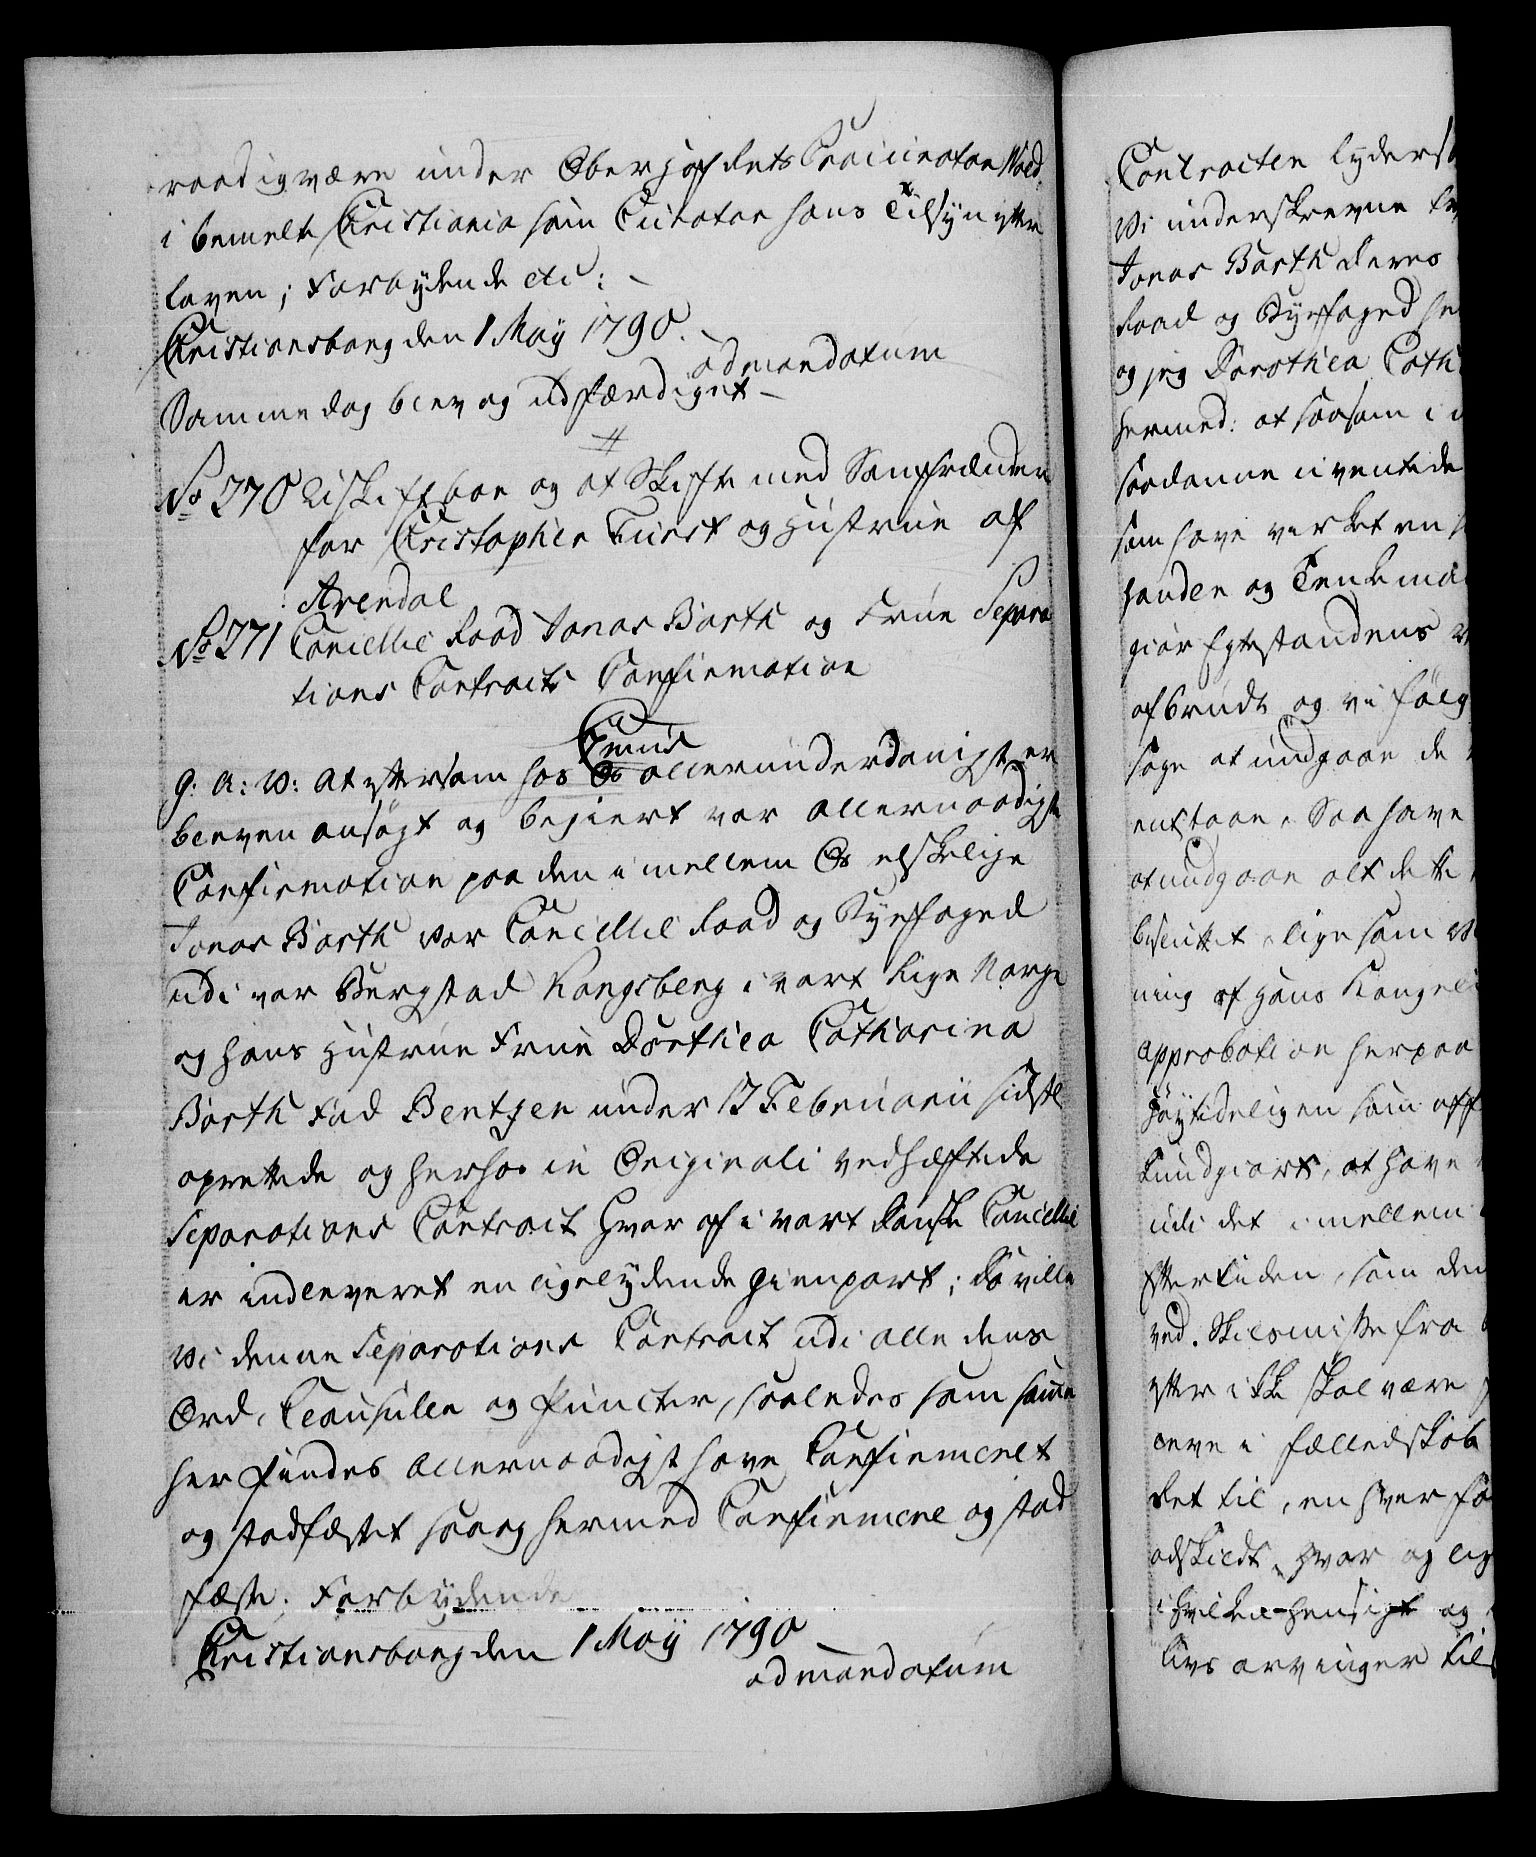 raadig være under Oberhofrets Procurator Wold
i bemelte Christiania som Curator hans Tilsyn efter
loven; Forbydende etc: –
Christiansborg den 1 May 1790.
ad mandatum
Samme dag blev og udfærdiget –
No 270 Uskiftbar og at Skifte med Samfrænder
for Christopher Fürst og Hustrue af
Arendal
No 271 Cancellie Raad Jonas Barth og Frue Separa
tions Contracts Confirmation
G: A: V: At eftersom hos Os allerunderdanigst er
bleven ansøgt og begiert vor allernaadigste
Confirmation paa den imellem Os elskelige
Jonas Barth vor Cancellie Raad og Byefoged
udi vor Bergstad Kongsberg i vort Rige Norge
og hans Hustrue Frue Dorthea Catharina
Barth Fød Bentzen under 17 Februarii sidstl
oprettede og herhos in Originali vedhæftede
Separations Contract hvor af i vort danske Cancellie
er indleveret en ligelydende Gienpart; Da ville
Vi denne Separations Contract udi alle dens
Ord, Clausuler og Puncter, saaledes som samme
her findes allernaadigst have Confirmeret
og stadfæstet saa og hermed Confirmere og stad
fæste; Forbydende
Christiansborg den 1 May 1790
ad mandatum
Contracten lyder
Vi underskrevne
Jonas Barth
Raad og Byefoged
og jeg Dorothea Cath
hermed: at saasom i
saadanne uventede
som have virket en
handen og Tenkema
giør Egtestandens
afbrudt og vi følg
søge at undgaae de
entstaae, Saa have
at undgaae alt dette
besluttet, ligesom
ning af Hans Kongel
approbation herpaa
høytideligen som off
kundgiort, at have
udi det imellem
Eftertiden, som den
ved Skilsmisse fra
efter ikke skal være
leve i fælledskab
det til, en hver
adskildt, hvor og lig
i hvilken henseigt og
livs arvinger til